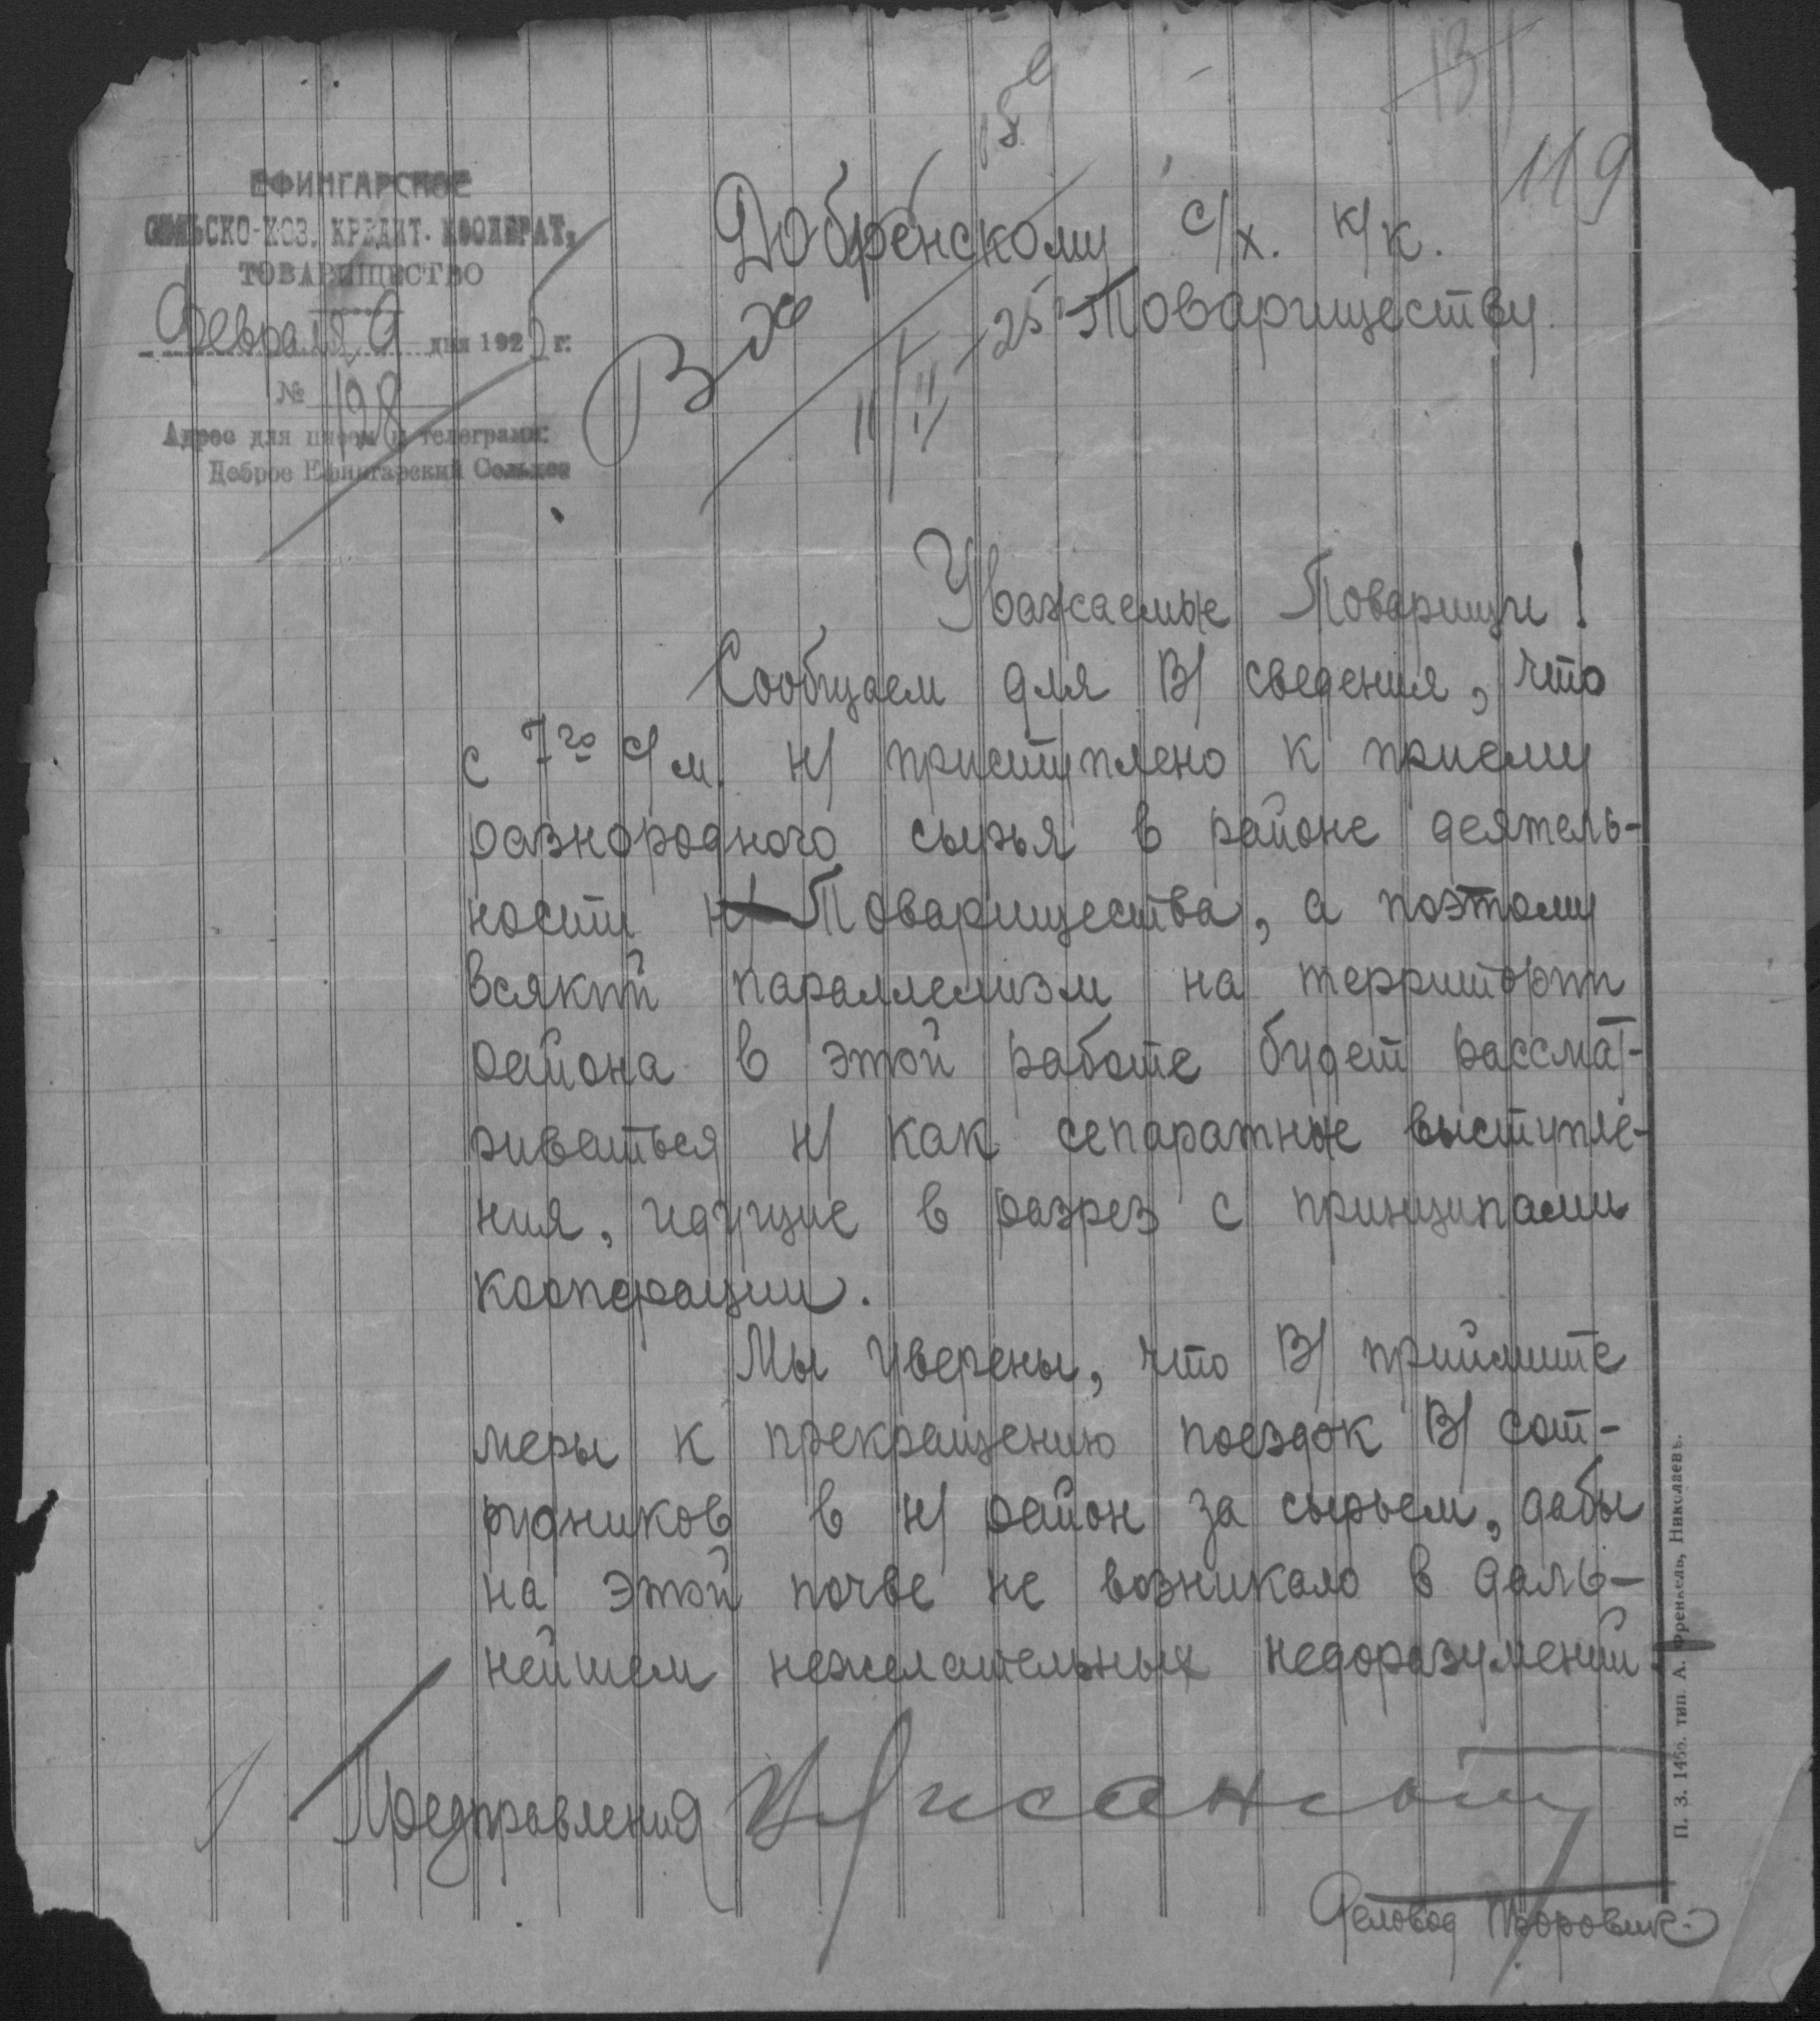 131
119
159
ЕФИНГАРСКОЕ
СЕЛЬСКО-ХОЗ. КРЕДИТ. КООПЕРАТ.
ТОВАРИЩЕСТВО
Февраля 9 дня 1925 г.
№ 198
Адрес для писем и телеграмм:
Доброе Ефингарский Сельхоз
Добренскому с/х. к/к.
Товариществу
Вх
11/II 25
Уважаемые Товарищи!
Сообщаем для В/ сведения, что
с 7го с/м. н/ приступлено к приему
разнородного сырья в районе деятель-
ности н/ Товарищества, а поэтому
всякий параллелизм на территории
района в этой работе будет рассмат-
риваться н/ как сепаратные выступле-
ния, идущие в разрез с принципами
кооперации.
Мы уверены, что В/ приймите
меры к прекращению поездок В/ сот-
рудников в н/ район за сырьем, дабы
на этой почве не возникало в даль-
нейшем нежелательных недоразумений.
Предправления
Деловод Боровик
П. З. 1456. тип. А. Френкель, Николаевъ.